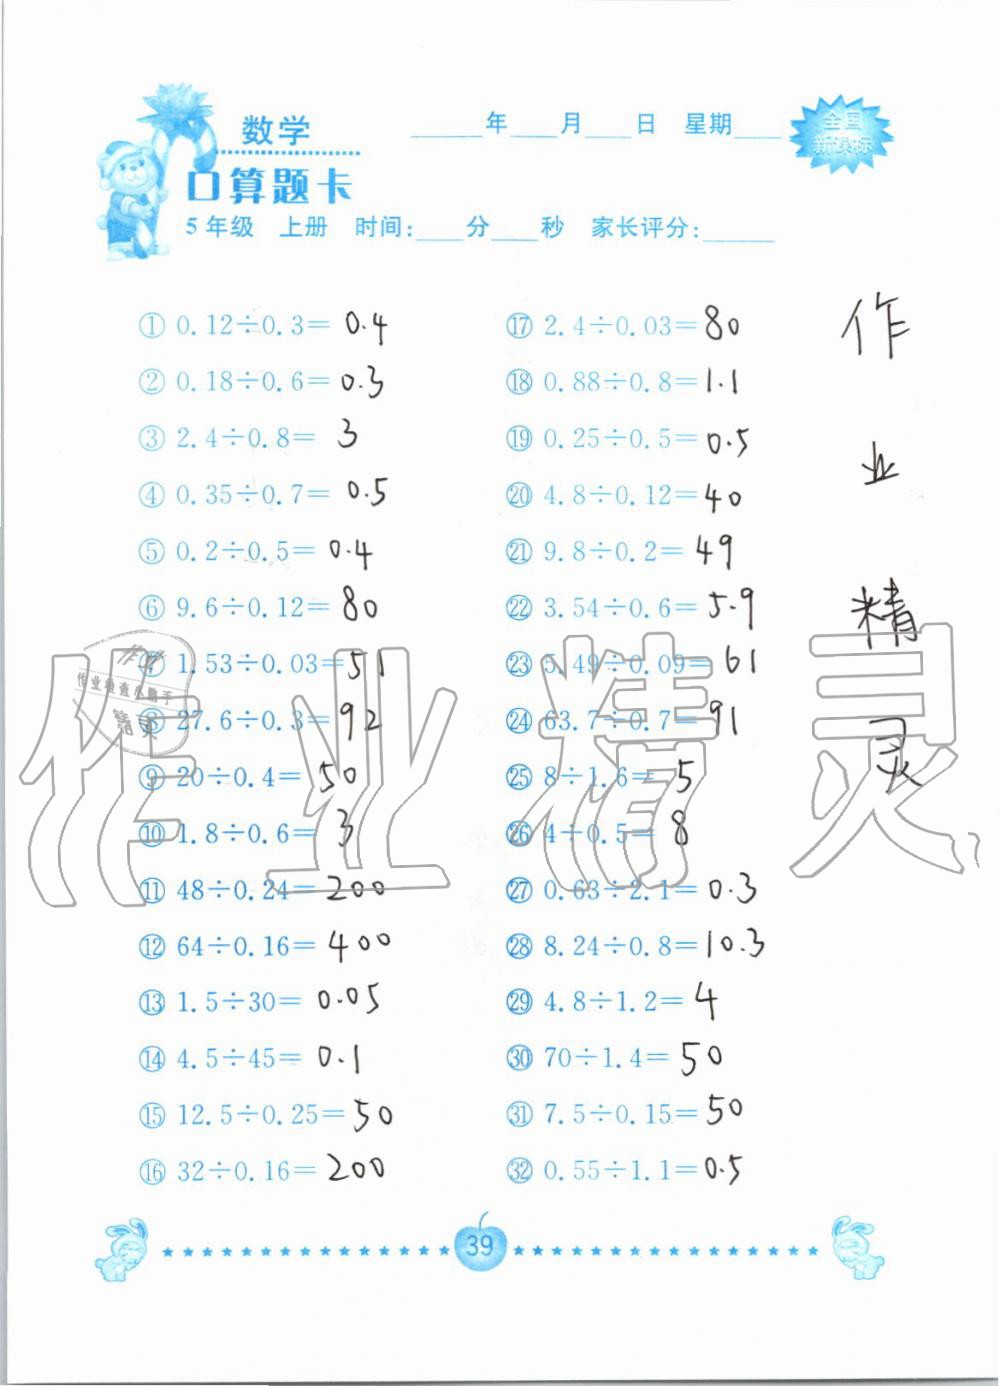 数学
____年____月____日 星期____
全国
新课标
口算题卡
5年级 上册 时间:____分____秒 家长评分:______
① 0.12÷0.3= 0.4
② 0.18÷0.6= 0.3
③ 2.4÷0.8= 3
④ 0.35÷0.7= 0.5
⑤ 0.2÷0.5= 0.4
⑥ 9.6÷0.12= 80
⑦ 1.53÷0.03= 51
⑧ 27.6÷0.3= 92
⑨ 20÷0.4= 50
⑩ 1.8÷0.6= 3
⑪ 48÷0.24= 200
⑫ 64÷0.16= 400
⑬ 1.5÷30= 0.05
⑭ 4.5÷45= 0.1
⑮ 12.5÷0.25= 50
⑯ 32÷0.16= 200
⑰ 2.4÷0.03= 80
⑱ 0.88÷0.8= 1.1
⑲ 0.25÷0.5= 0.5
⑳ 4.8÷0.12= 40
㉑ 9.8÷0.2= 49
㉒ 3.54÷0.6= 5.9
㉓ 5.49÷0.09= 61
㉔ 63.7÷0.7= 91
㉕ 8÷1.6= 5
㉖ 4÷0.5= 8
㉗ 0.63÷2.1= 0.3
㉘ 8.24÷0.8= 10.3
㉙ 4.8÷1.2= 4
㉚ 70÷1.4= 50
㉛ 7.5÷0.15= 50
㉜ 0.55÷1.1= 0.5
作
业
精
灵
作业精灵
39